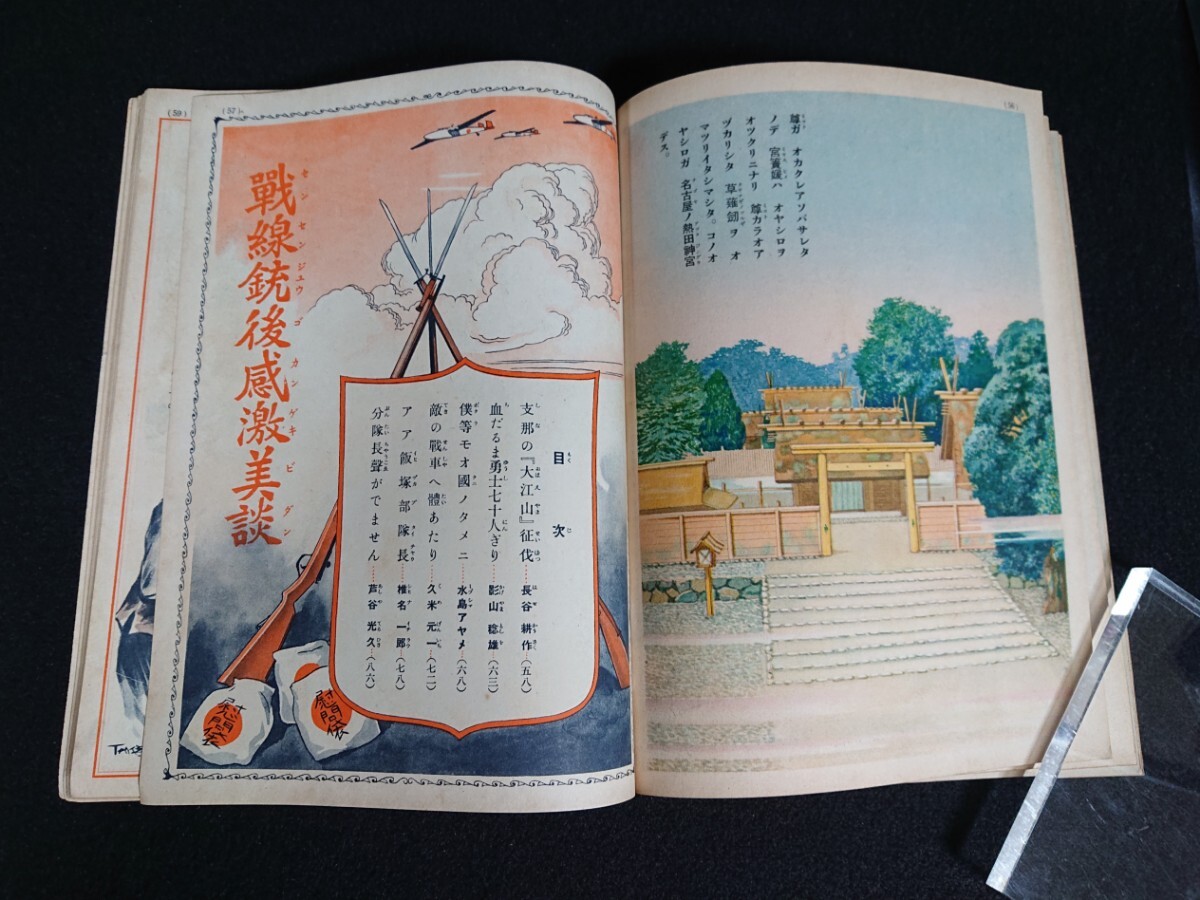 (56)
尊ガ オカクレアソバサレタ
ノデ 宮簀媛ハ オヤシロヲ
オツクリニナリ 尊カラオア
ヅカリシタ 草薙劔ヲ オ
マツリイタシマシタ。コノオ
ヤシロガ 名古屋ノ熱田神宮
デス。
(57)
戰線銃後感激美談
センセンジュウゴカンゲキビダン
目次
支那の『大江山』征伐……長谷耕作(五八)
血だるま勇士七十人ぎり……影山稔雄(六三)
僕等モオ國ノタメニ……水島アヤメ(六八)
敵の戰車へ體あたり……久米元一(七二)
アア飯塚部隊長……椎名一郎(七八)
分隊長聲がでません……芦谷光久(八六)
慰問袋
慰問袋
(59)